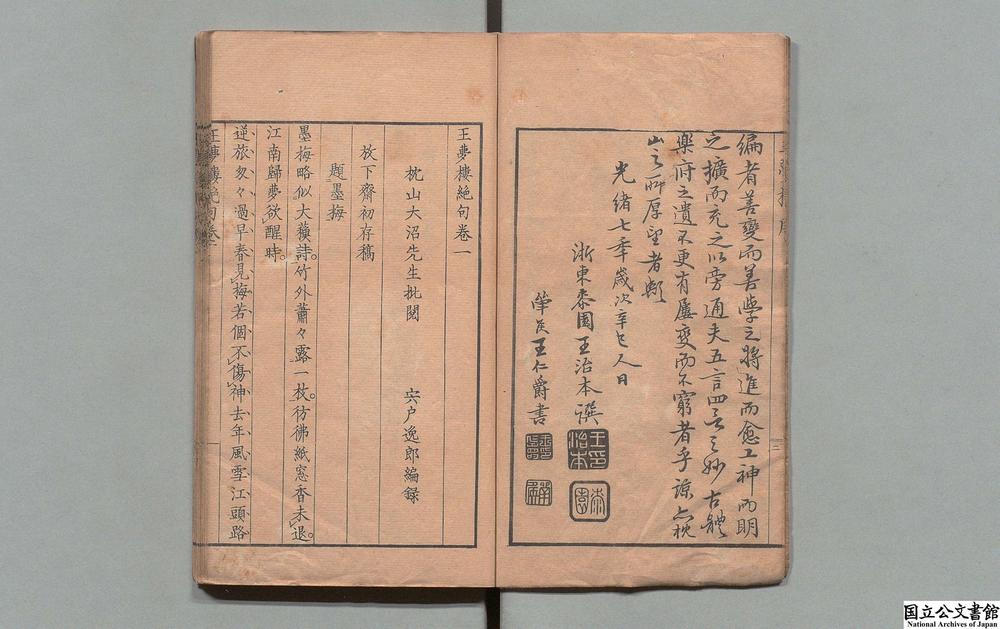 編者善變而善學之將進而愈工神而明
之擴而充之以旁通夫五言四言之妙古體
樂府之遺不更有屢變而不窮者乎諒亦枕
山之所厚望者歟
光緒七年歲次辛巳人日
浙東桼園王治本譔
華侯王仁爵書
王印治本
桼園
王夢樓絕句卷一
枕山大沼先生批閱 宍户逸郎編録
放下齋初存稿
題墨梅
墨梅略似大蘓詩。竹外蕭々露一枝。彷彿紙窓香未退。
江南歸夢欲醒時。
逆旅匆々過早春見梅若個不傷神去年風雪江頭路
王夢樓絕句卷一
国立公文書館
National Archives of Japan